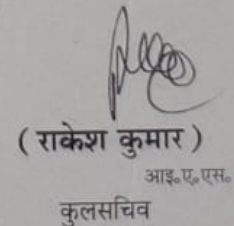 ( राकेश कुमार )
आइ॰ए॰एस॰
कुलसचिव